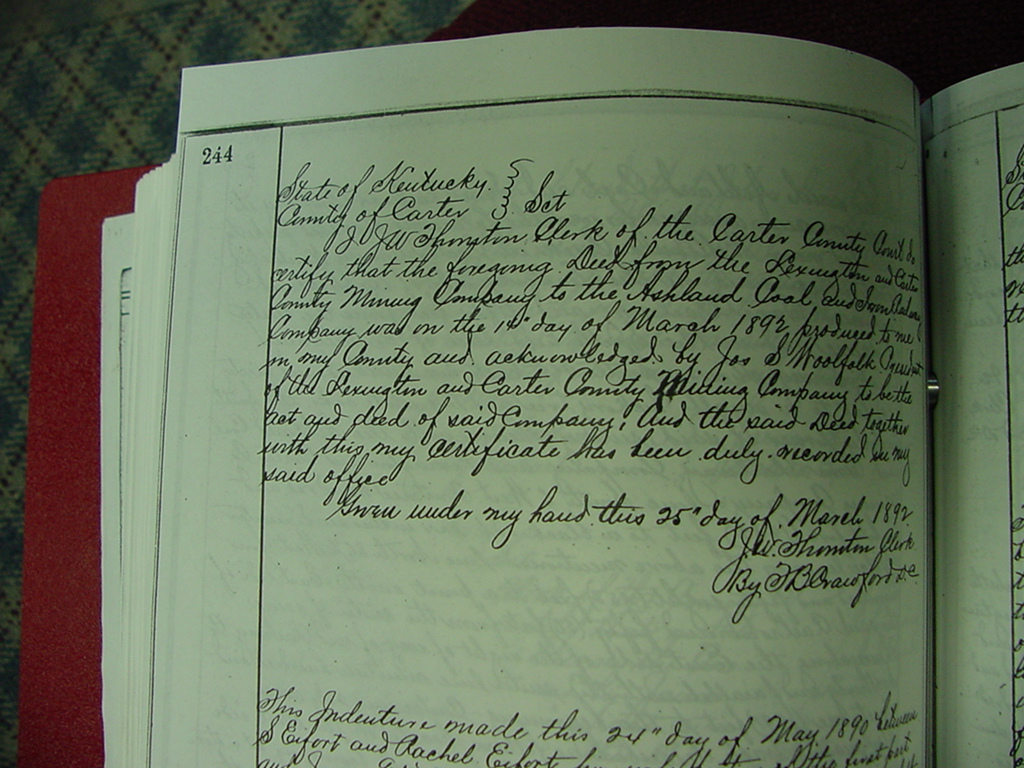 244
State of Kentucky
County of Carter } Sct
I JW Thornton Clerk of the Carter County Court do
certify that the foregoing Deed from the Lexington and Carter
County Mining Company to the Ashland Coal and Iron Railway
Company was on the 14" day of March 1892 produced to me
in my County and acknowledged by Jos S Woolfolk President
of the Lexington and Carter County Mining Company to be the
act and deed of said Company, And the said Deed together
with this my certificate has been duly recorded in my
said office
Given under my hand this 25" day of March 1892
J.W. Thornton Clerk
By F B Crawford D.C
This Indenture made this 24" day of May 1890 between
S Eifort and Rachel Eifort
the first part